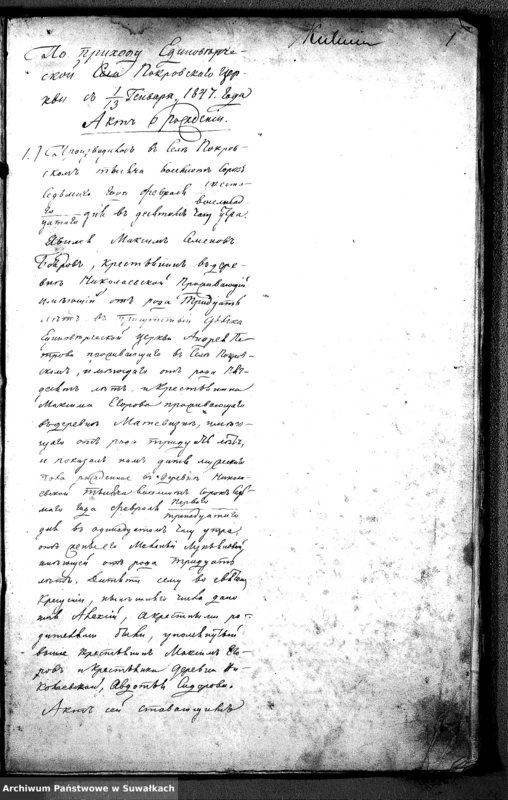 1
По приходу Единовѣрче-
ской Села Покровскаго Цер-
кви съ 1/13 Генваря, 1847. года
Актъ о Рожденіи.
1.) Производилось въ Селѣ Покров-
скомъ тысяча восемьсотъ сорокъ
седьмаго года февраля
дня въ девятомъ часу утра.
Явился Максимъ Семеновъ
крестьянинъ въ дере-
внѣ Николаевской Проживающій
имѣющій отъ рода тридцать
лѣтъ въ присутствіи
Единовѣрческой церкви Андрея Пе-
трова проживающаго въ Селѣ Покров-
скомъ, имѣющаго отъ рода пять-
десятъ лѣтъ и крестьянина
Максима Егорова проживающаго
въ деревнѣ имѣю-
щаго отъ рода тридцать лѣтъ,
и показалъ намъ дитя мужескаго
пола рожденное въ деревнѣ Никола-
евской тысяча восемьсотъ сорокъ седь-
маго года февраля перваго
тринадцатаго
дня въ одинадцатомъ часу утра,
отъ жены его
имѣющей отъ рода тридцать
лѣтъ. Дитяти сему во святомъ
Крещеніи, нынѣшняго числа дано
имя Алексій, а крестными ро-
дителями были,
выше крестьянинъ Максимъ Его-
ровъ и крестьянка деревни Ни-
колаевской, Авдотья Сидорова.
Актъ сей
Archiwum Państwowe w Suwałkach